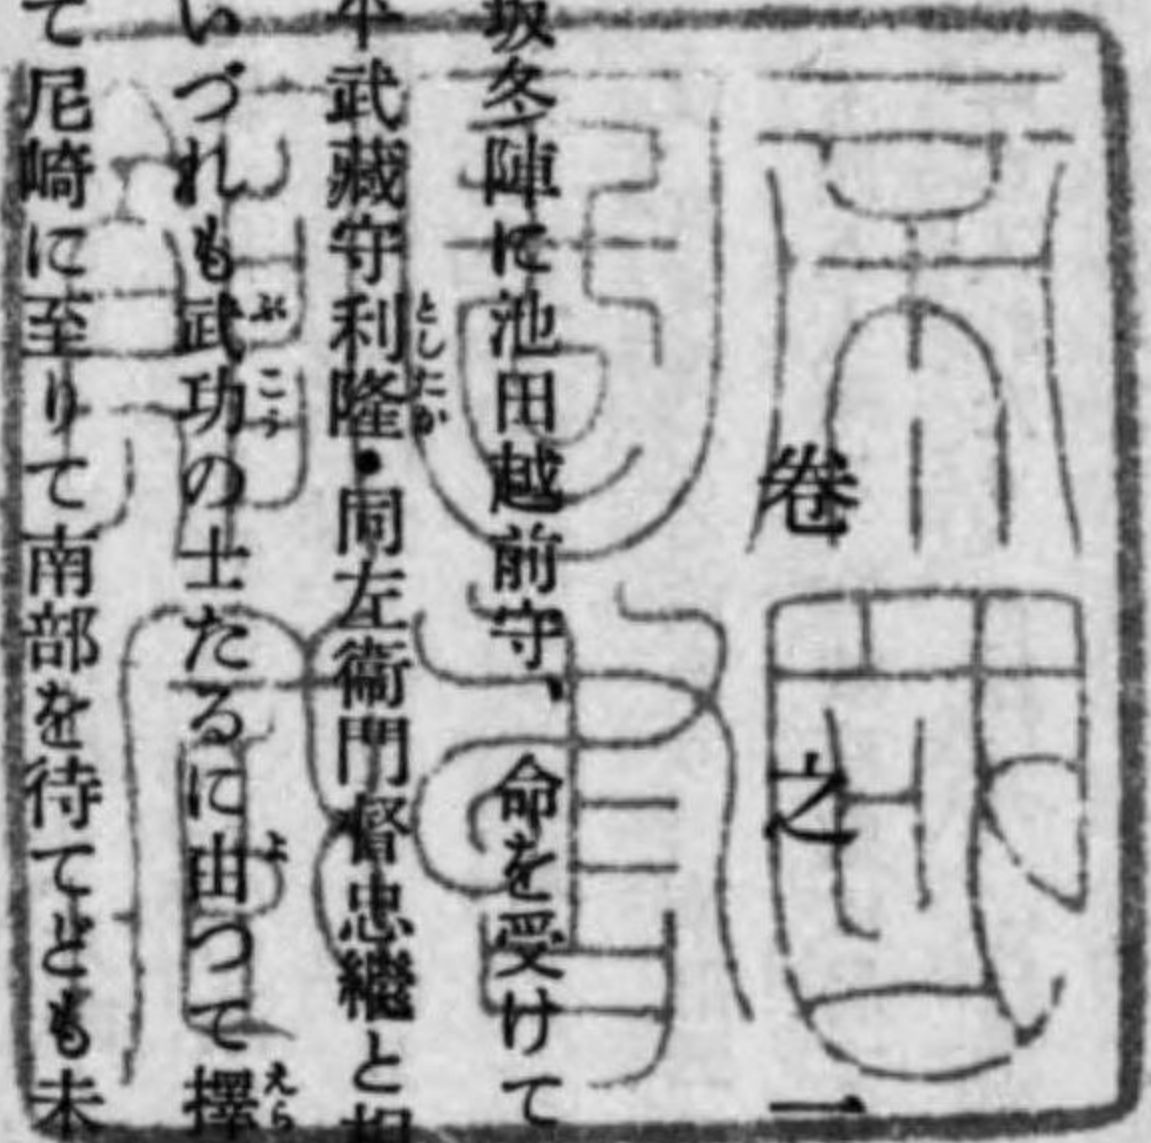 卷之一
坂冬陣に池田越前守、命を受けて
武藏守利隆・同左衞門督忠繼と相
いづれも武功の士たるに由つて擇
て尼崎に至りて南部を待てども未